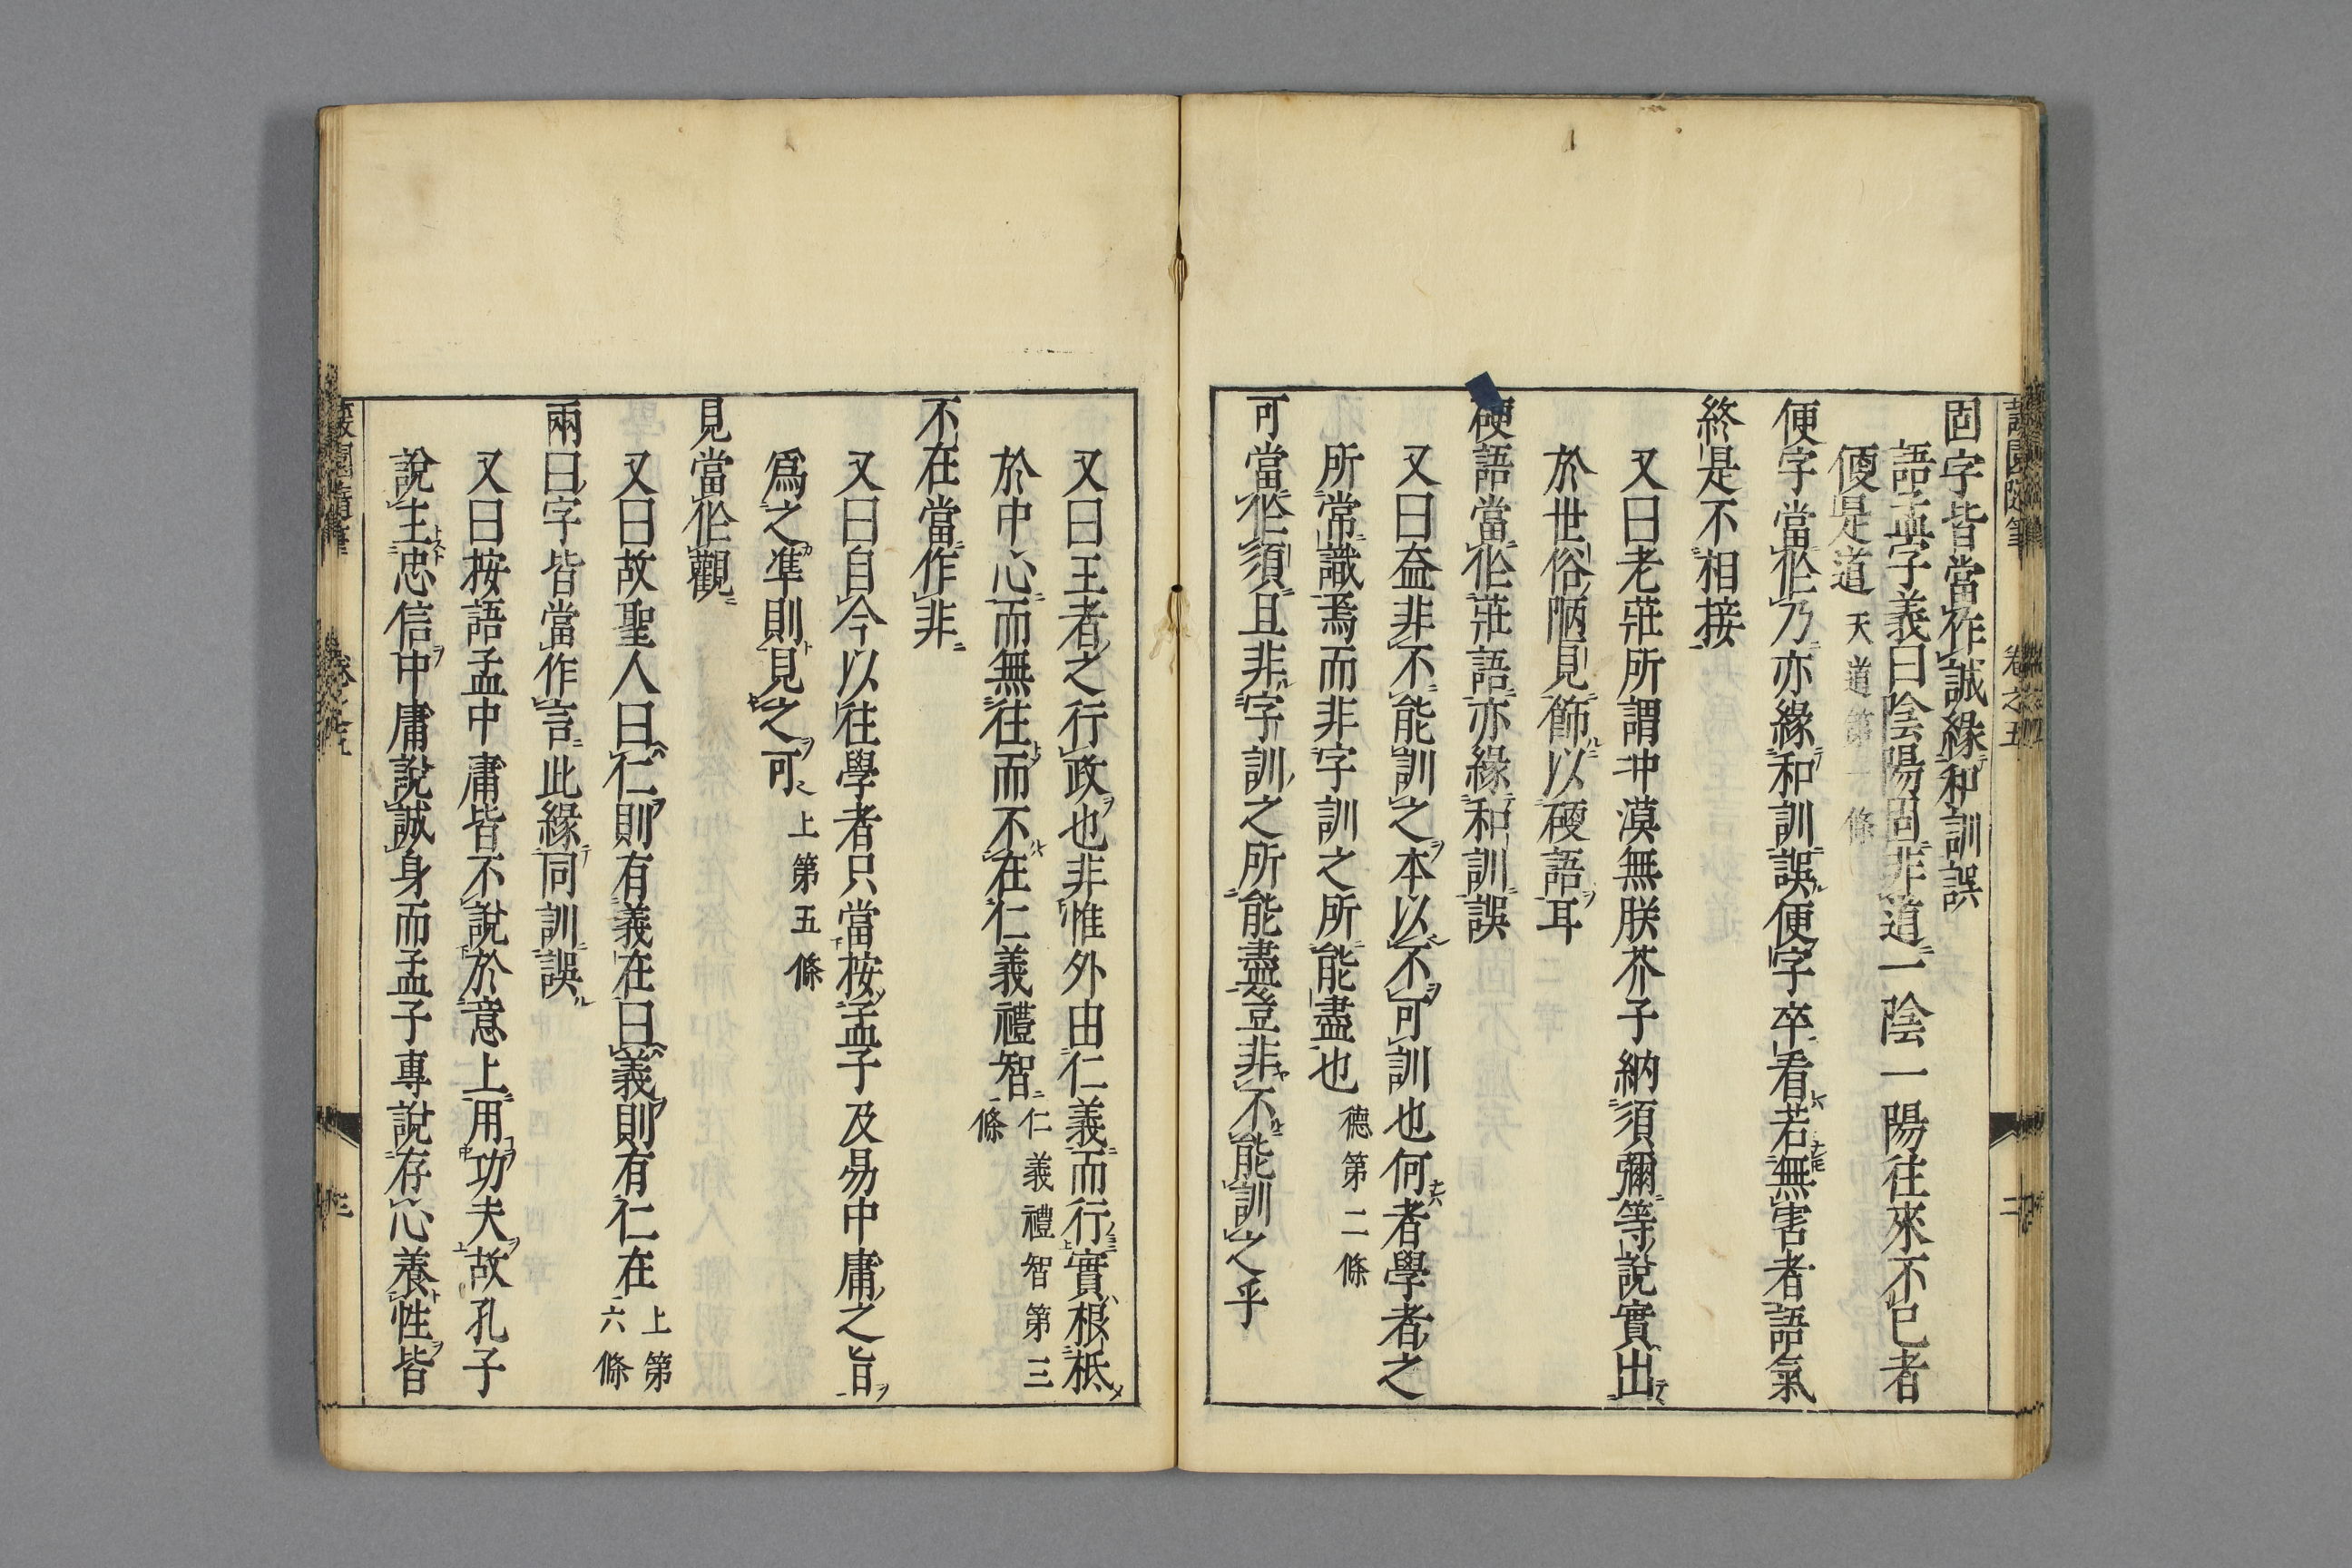 固字皆當作誠緣和訓誤
語孟字義曰陰陽固非道一陰一陽往來不已者
便是道 天道第一條
便字當作乃亦緣和訓誤便字卒看若無害者語氣
終是不相接
又曰老莊所謂冲漠無朕芥子納須彌等說實出
於世俗陋見飾以硬語耳
硬語當作莊語亦緣和訓誤
又曰蓋非不能訓之本以不可訓也何者學者之
所常識焉而非字訓之所能盡也 德第二條
可當作須且非字訓之所能盡豈非不能訓之乎
又曰王者之行政也非惟外由仁義而行實根柢
於中心而無往而不在仁義禮智 仁義禮智第三條
不在當作非
又曰自今以往學者只當按孟子及易中庸之旨
爲之準則見之可 上第五條
見當作觀
又曰故聖人曰仁則有義在曰義則有仁在 上第六條
兩曰字皆當作言此緣同訓誤
又曰按語孟中庸皆不說於意上用功夫故孔子
說主忠信中庸說誠身而孟子專說存心養性皆
卷之五
二
蘐園隨筆